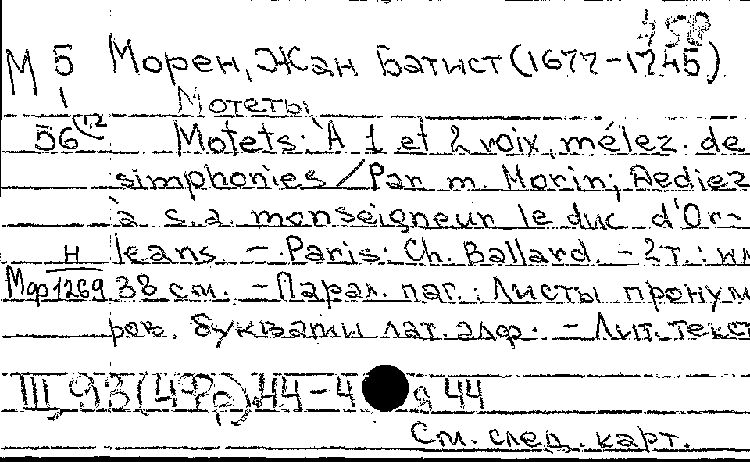 М 5 Морен, Жан Батист (1677-1745)
1 Мотеты
56(12) Motets: À 1 et 2 voix, mélez. de
simphonies / Par m. Morin; Dediez
à s.a. monseigneur le duc d'Or-
н leans. - Paris: Ch. Ballard. - 2 т.: ил
Мф1269 38 см. - Парал. паг.: Листы пронум
ров. буквами лат. алф. - Лит. текст
III, 93(4Фр).44-4 я 44
См. след. карт.